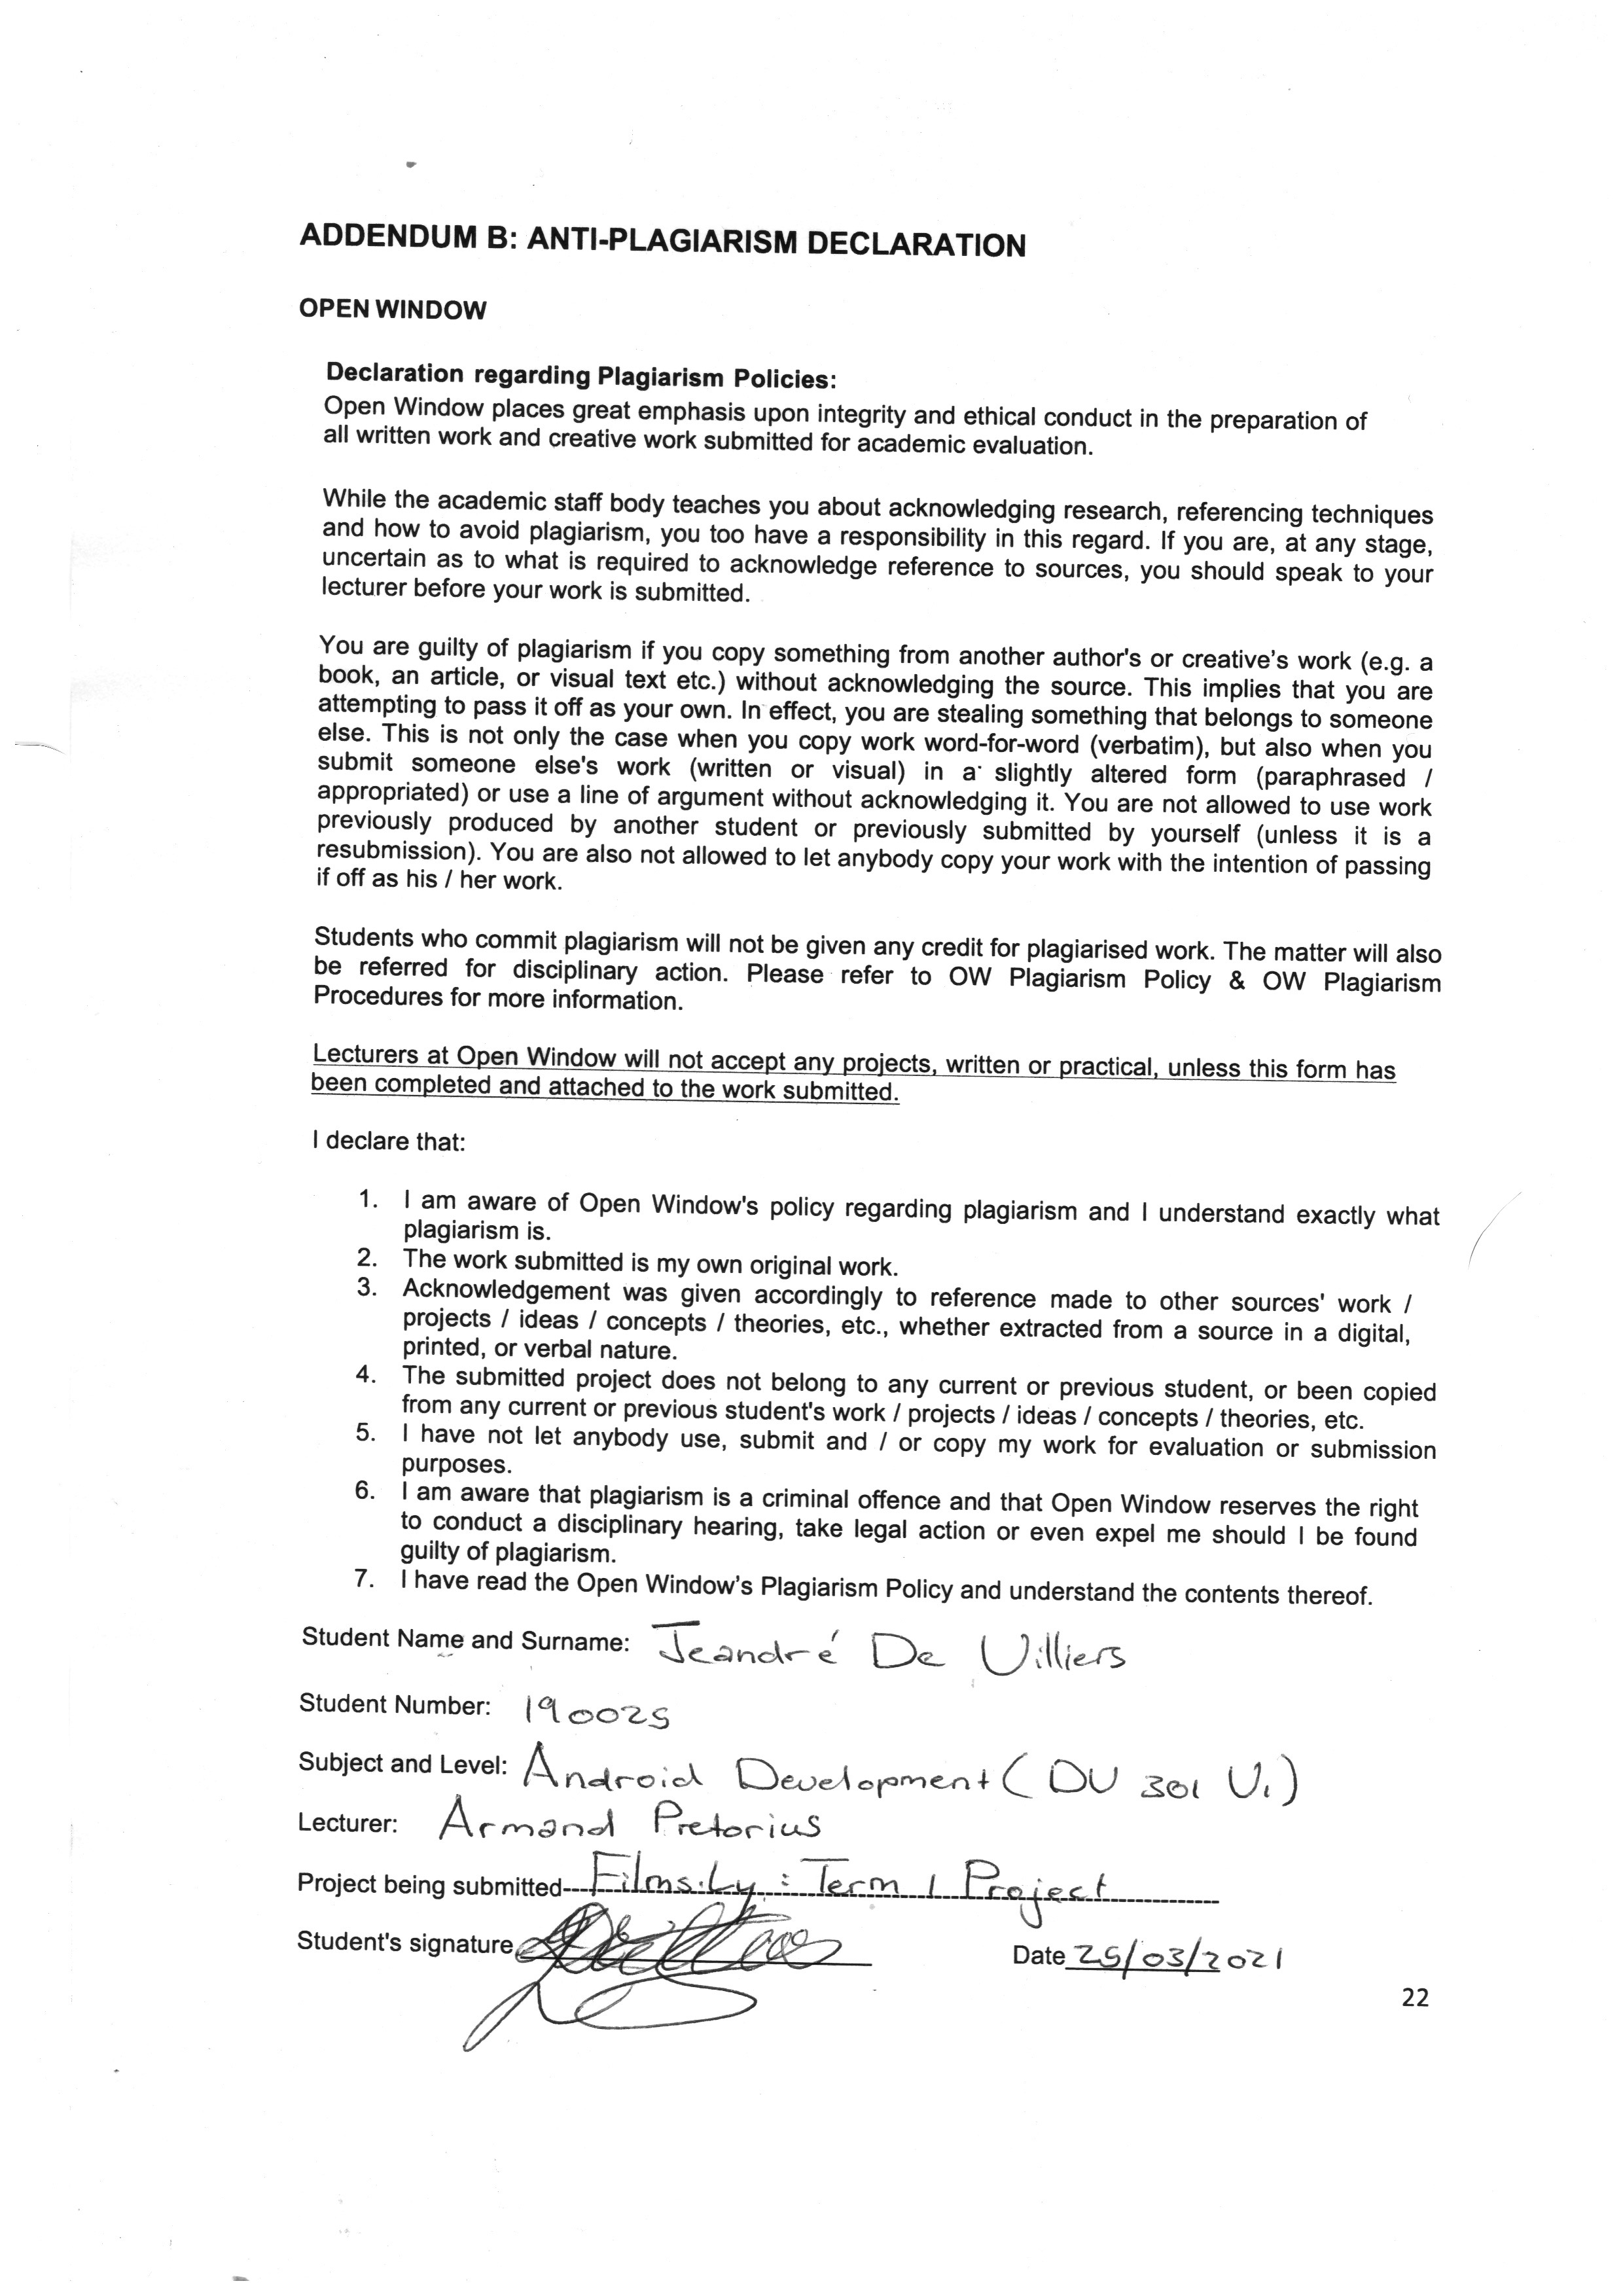 ADDENDUM B: ANTI-PLAGIARISM DECLARATION
OPEN WINDOW
Declaration regarding Plagiarism Policies:
Open Window places great emphasis upon integrity and ethical conduct in the preparation of
all written work and creative work submitted for academic evaluation.
While the academic staff body teaches you about acknowledging research, referencing techniques
and how to avoid plagiarism, you too have a responsibility in this regard. If you are, at any stage,
uncertain as to what is required to acknowledge reference to sources, you should speak to your
lecturer before your work is submitted.
You are guilty of plagiarism if you copy something from another author's or creative's work (e.g. a
book, an article, or visual text etc.) without acknowledging the source. This implies that you are
attempting to pass it off as your own. In effect, you are stealing something that belongs to someone
else. This is not only the case when you copy work word-for-word (verbatim), but also when you
submit someone else's work (written or visual) in a slightly altered form (paraphrased /
appropriated) or use a line of argument without acknowledging it. You are not allowed to use work
previously produced by another student or previously submitted by yourself (unless it is a
resubmission). You are also not allowed to let anybody copy your work with the intention of passing
if off as his / her work.
Students who commit plagiarism will not be given any credit for plagiarised work. The matter will also
be referred for disciplinary action. Please refer to OW Plagiarism Policy & OW Plagiarism
Procedures for more information.
Lecturers at Open Window will not accept any projects, written or practical, unless this form has
been completed and attached to the work submitted.
I declare that:
1. I am aware of Open Window's policy regarding plagiarism and I understand exactly what
plagiarism is.
2. The work submitted is my own original work.
3. Acknowledgement was given accordingly to reference made to other sources' work /
projects / ideas / concepts / theories, etc., whether extracted from a source in a digital,
printed, or verbal nature.
4. The submitted project does not belong to any current or previous student, or been copied
from any current or previous student's work / projects / ideas / concepts / theories, etc.
5. I have not let anybody use, submit and / or copy my work for evaluation or submission
purposes.
6. I am aware that plagiarism is a criminal offence and that Open Window reserves the right
to conduct a disciplinary hearing, take legal action or even expel me should I be found
guilty of plagiarism.
7. I have read the Open Window's Plagiarism Policy and understand the contents thereof.
Student Name and Surname: Jeandré De Villiers
Student Number: 190025
Subject and Level: Android Development (DV 301 V1)
Lecturer: Armand Pretorius
Project being submitted Films.Ly : Term 1 Project
Student's signature Date 25/03/2021
22